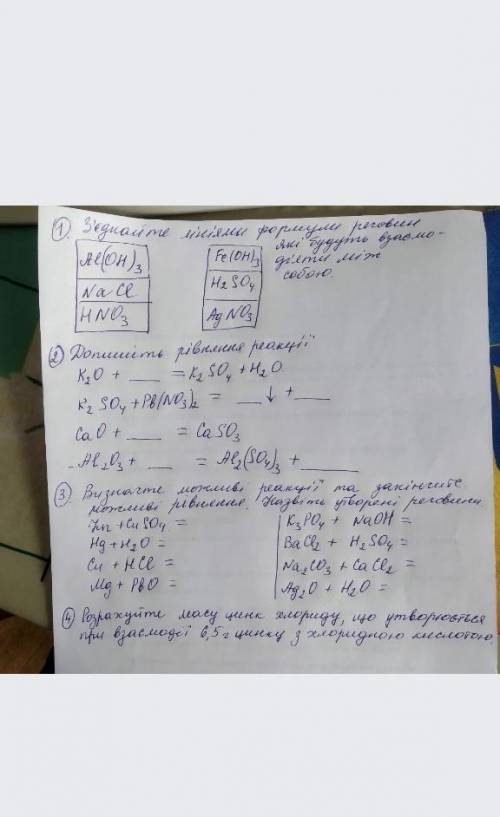 ① З'єднайте лініями формули речовин
які будуть взаємо-
діяти між
собою.
Al(OH)3
NaCl
HNO3
Fe(OH)3
H2SO4
AgNO3
② Допишіть рівняння реакції
K2O + ___ = K2SO4 + H2O
K2SO4 + Pb(NO3)2 = ___↓ + ___
CaO + ___ = CaSO3
Al2O3 + ___ = Al2(SO4)3 + ___
③ Визначте можливі реакції та закінчите
можливі рівняння. Назвіть утворені речовини.
Zn + CuSO4 =
Hg + H2O =
Cu + HCl =
Mg + PbO =
K3PO4 + NaOH =
BaCl2 + H2SO4 =
Na2CO3 + CaCl2 =
Ag2O + H2O =
④ Розрахуйте масу цинк хлориду, що утворюється
при взаємодії 6,5 г цинку з хлоридною кислотою.